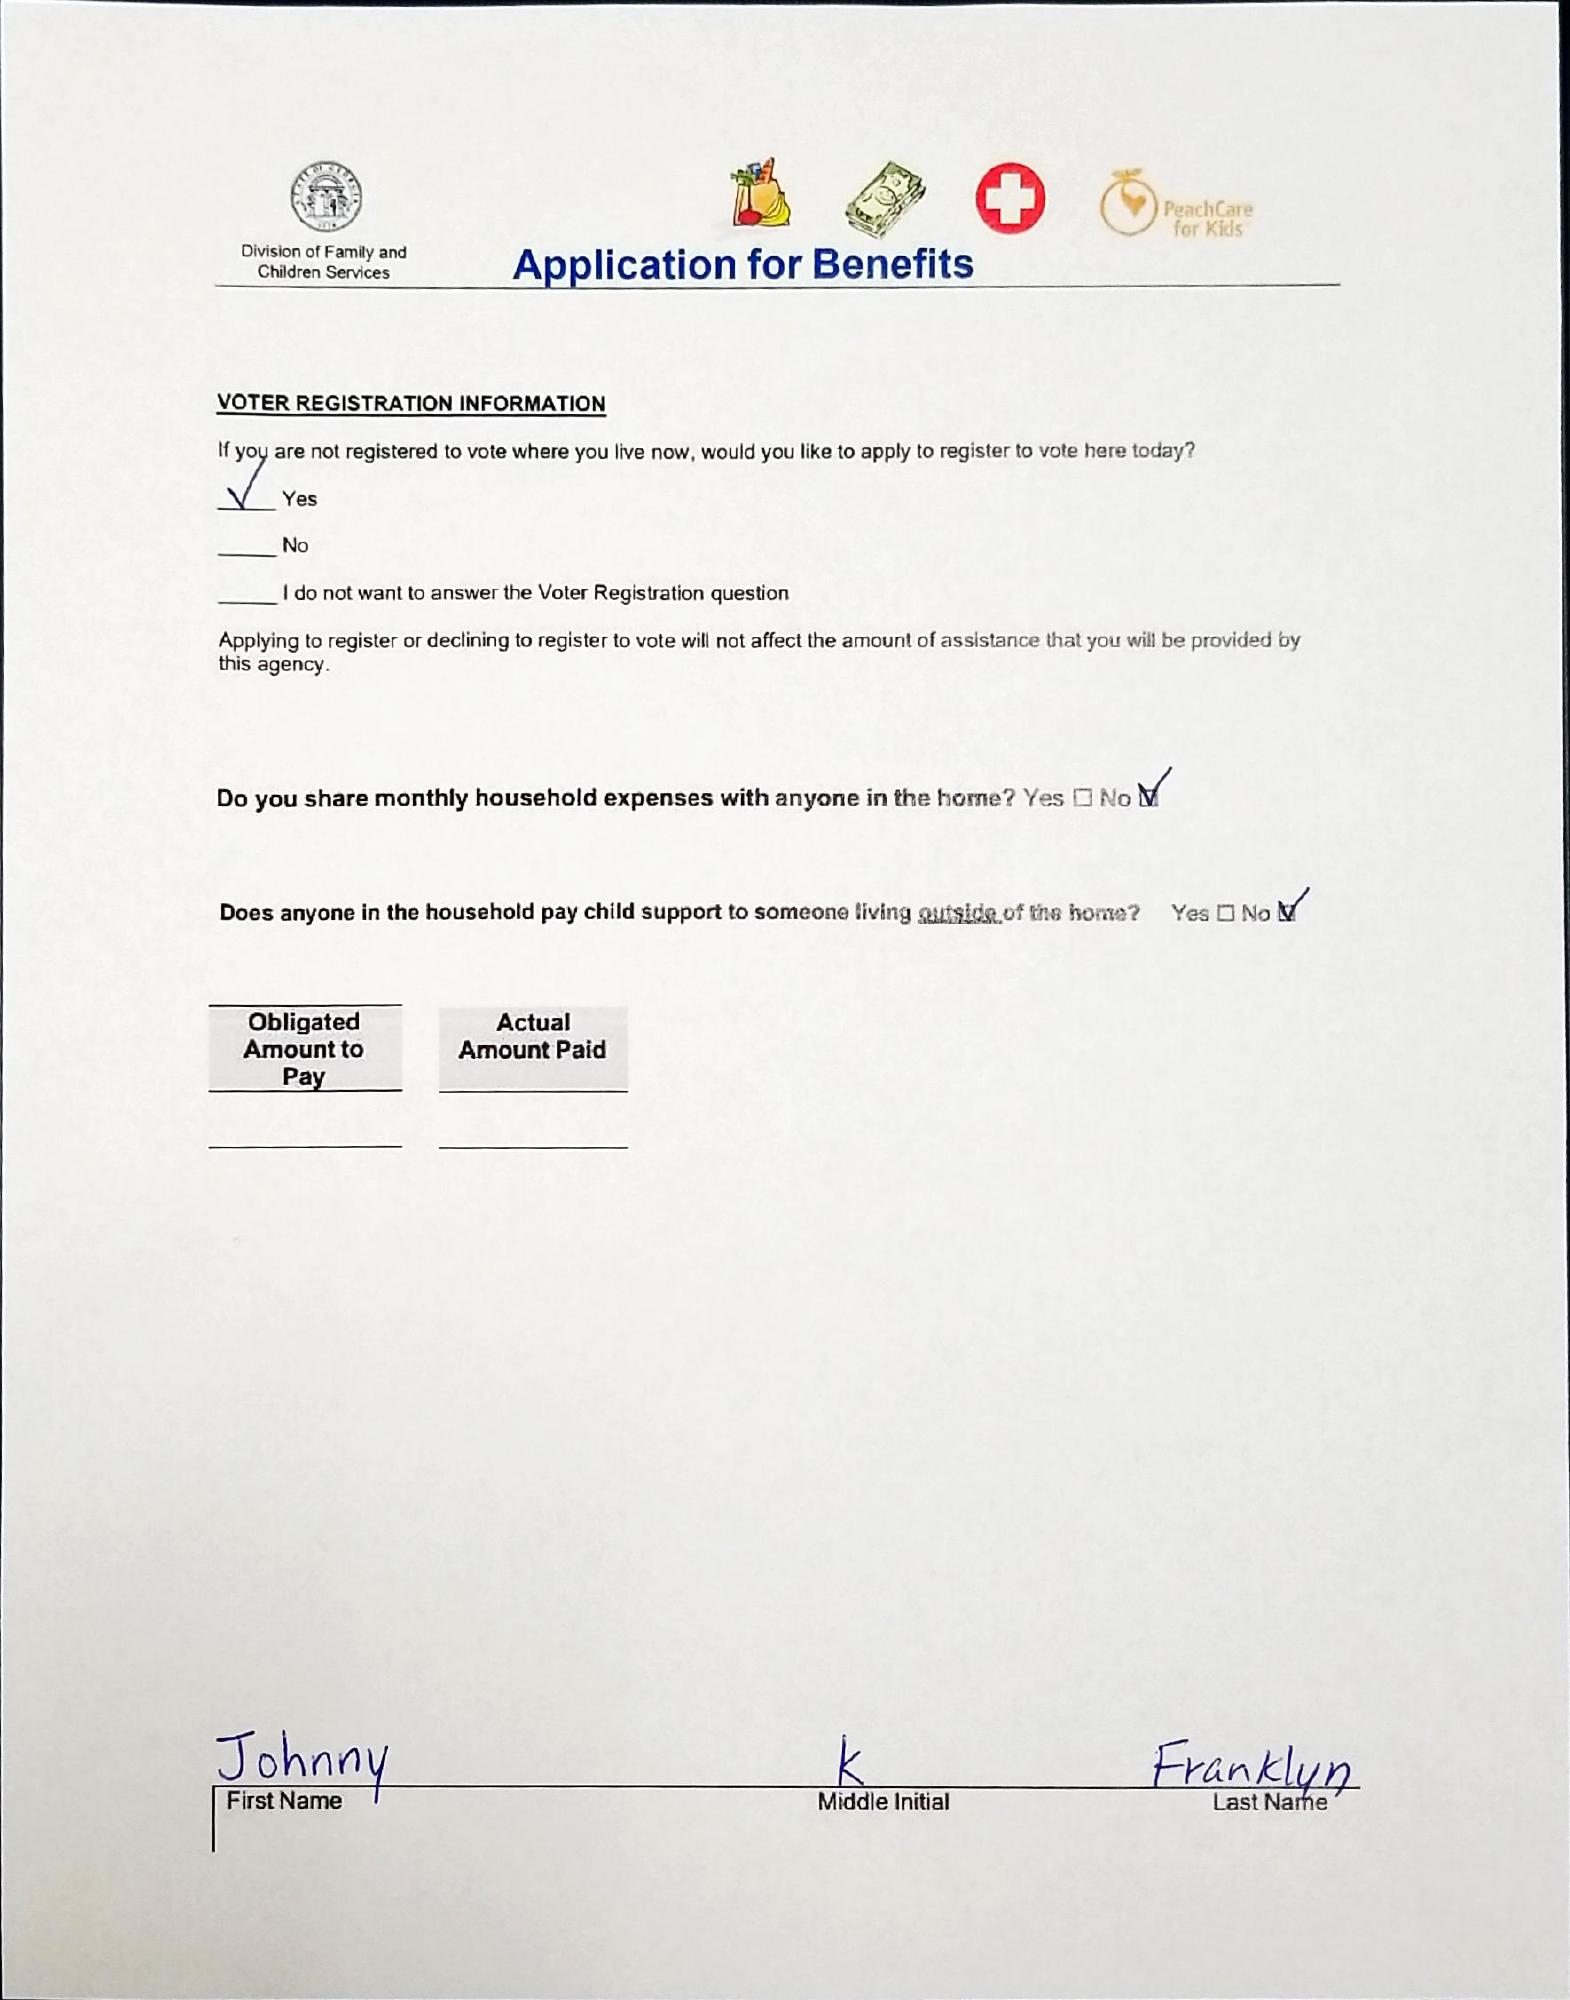 Division of Family and
Children Services
PeachCare
for Kids
Application for Benefits
VOTER REGISTRATION INFORMATION
If you are not registered to vote where you live now, would you like to apply to register to vote here today?
Yes
No
I do not want to answer the Voter Registration question
Applying to register or declining to register to vote will not affect the amount of assistance that you will be provided by
this agency.
Do you share monthly household expenses with anyone in the home? Yes ☐ No ☑
Does anyone in the household pay child support to someone living outside of the home? Yes ☐ No ☑
Obligated
Amount to
Pay
Actual
Amount Paid
Johnny K Franklyn
First Name Middle Initial Last Name